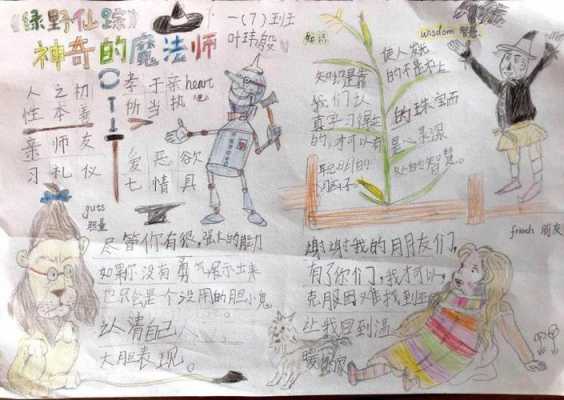 《绿野仙踪》
神奇的魔法师
一(7)班
叶玮殷
人之初
性本善
亲师友
习礼仪
孝于亲
所当执
爱恶欲
七情具
heart
guts
胆量
尽管你有很强大的能力
如果你没有勇气展示出来
也只会是个没用的胆小鬼
认清自己
大胆表现。
知识
知识是靠
我们认
真学习得来
的,才可以有
聪明的
wisdom 智慧
使人发光
的不是衣上
的珠宝而
是心灵深
处的智慧。
friend 朋友
谢谢我的朋友们,
有了你们,我才可以
克服困难找到
让我回到温
暖的家